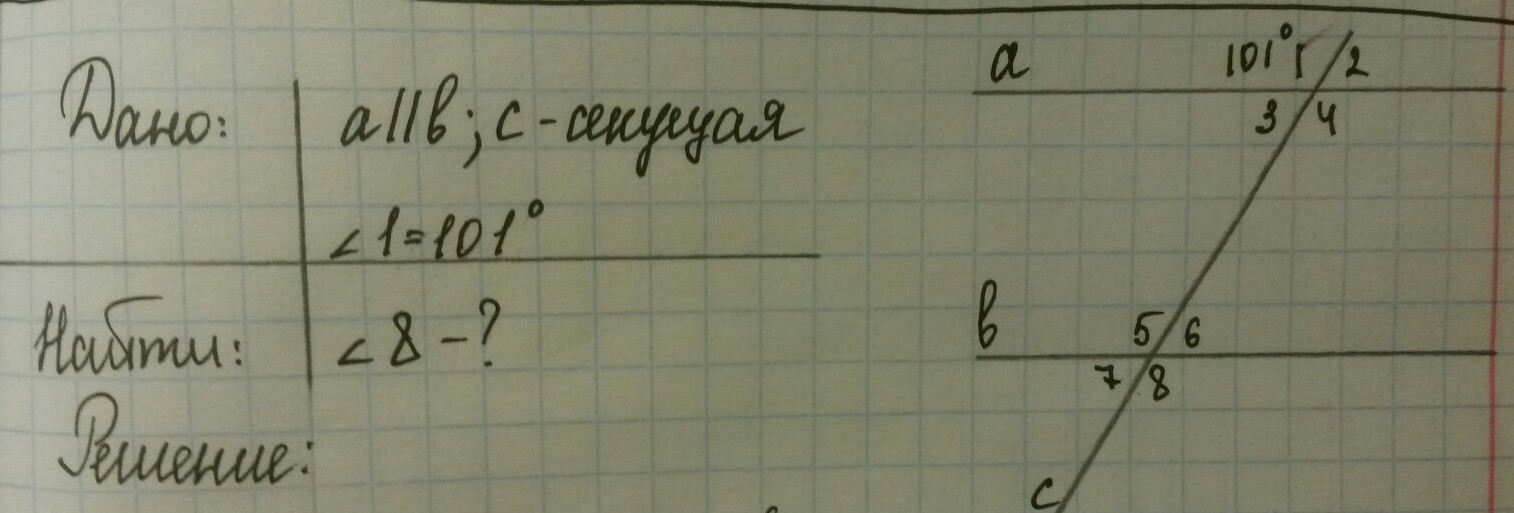 Дано: a||b; c - секущая
∠1=101°
Найти: ∠8 - ?
Решение:
a 101° 1 2
3 4
b 5 6
7 8
c